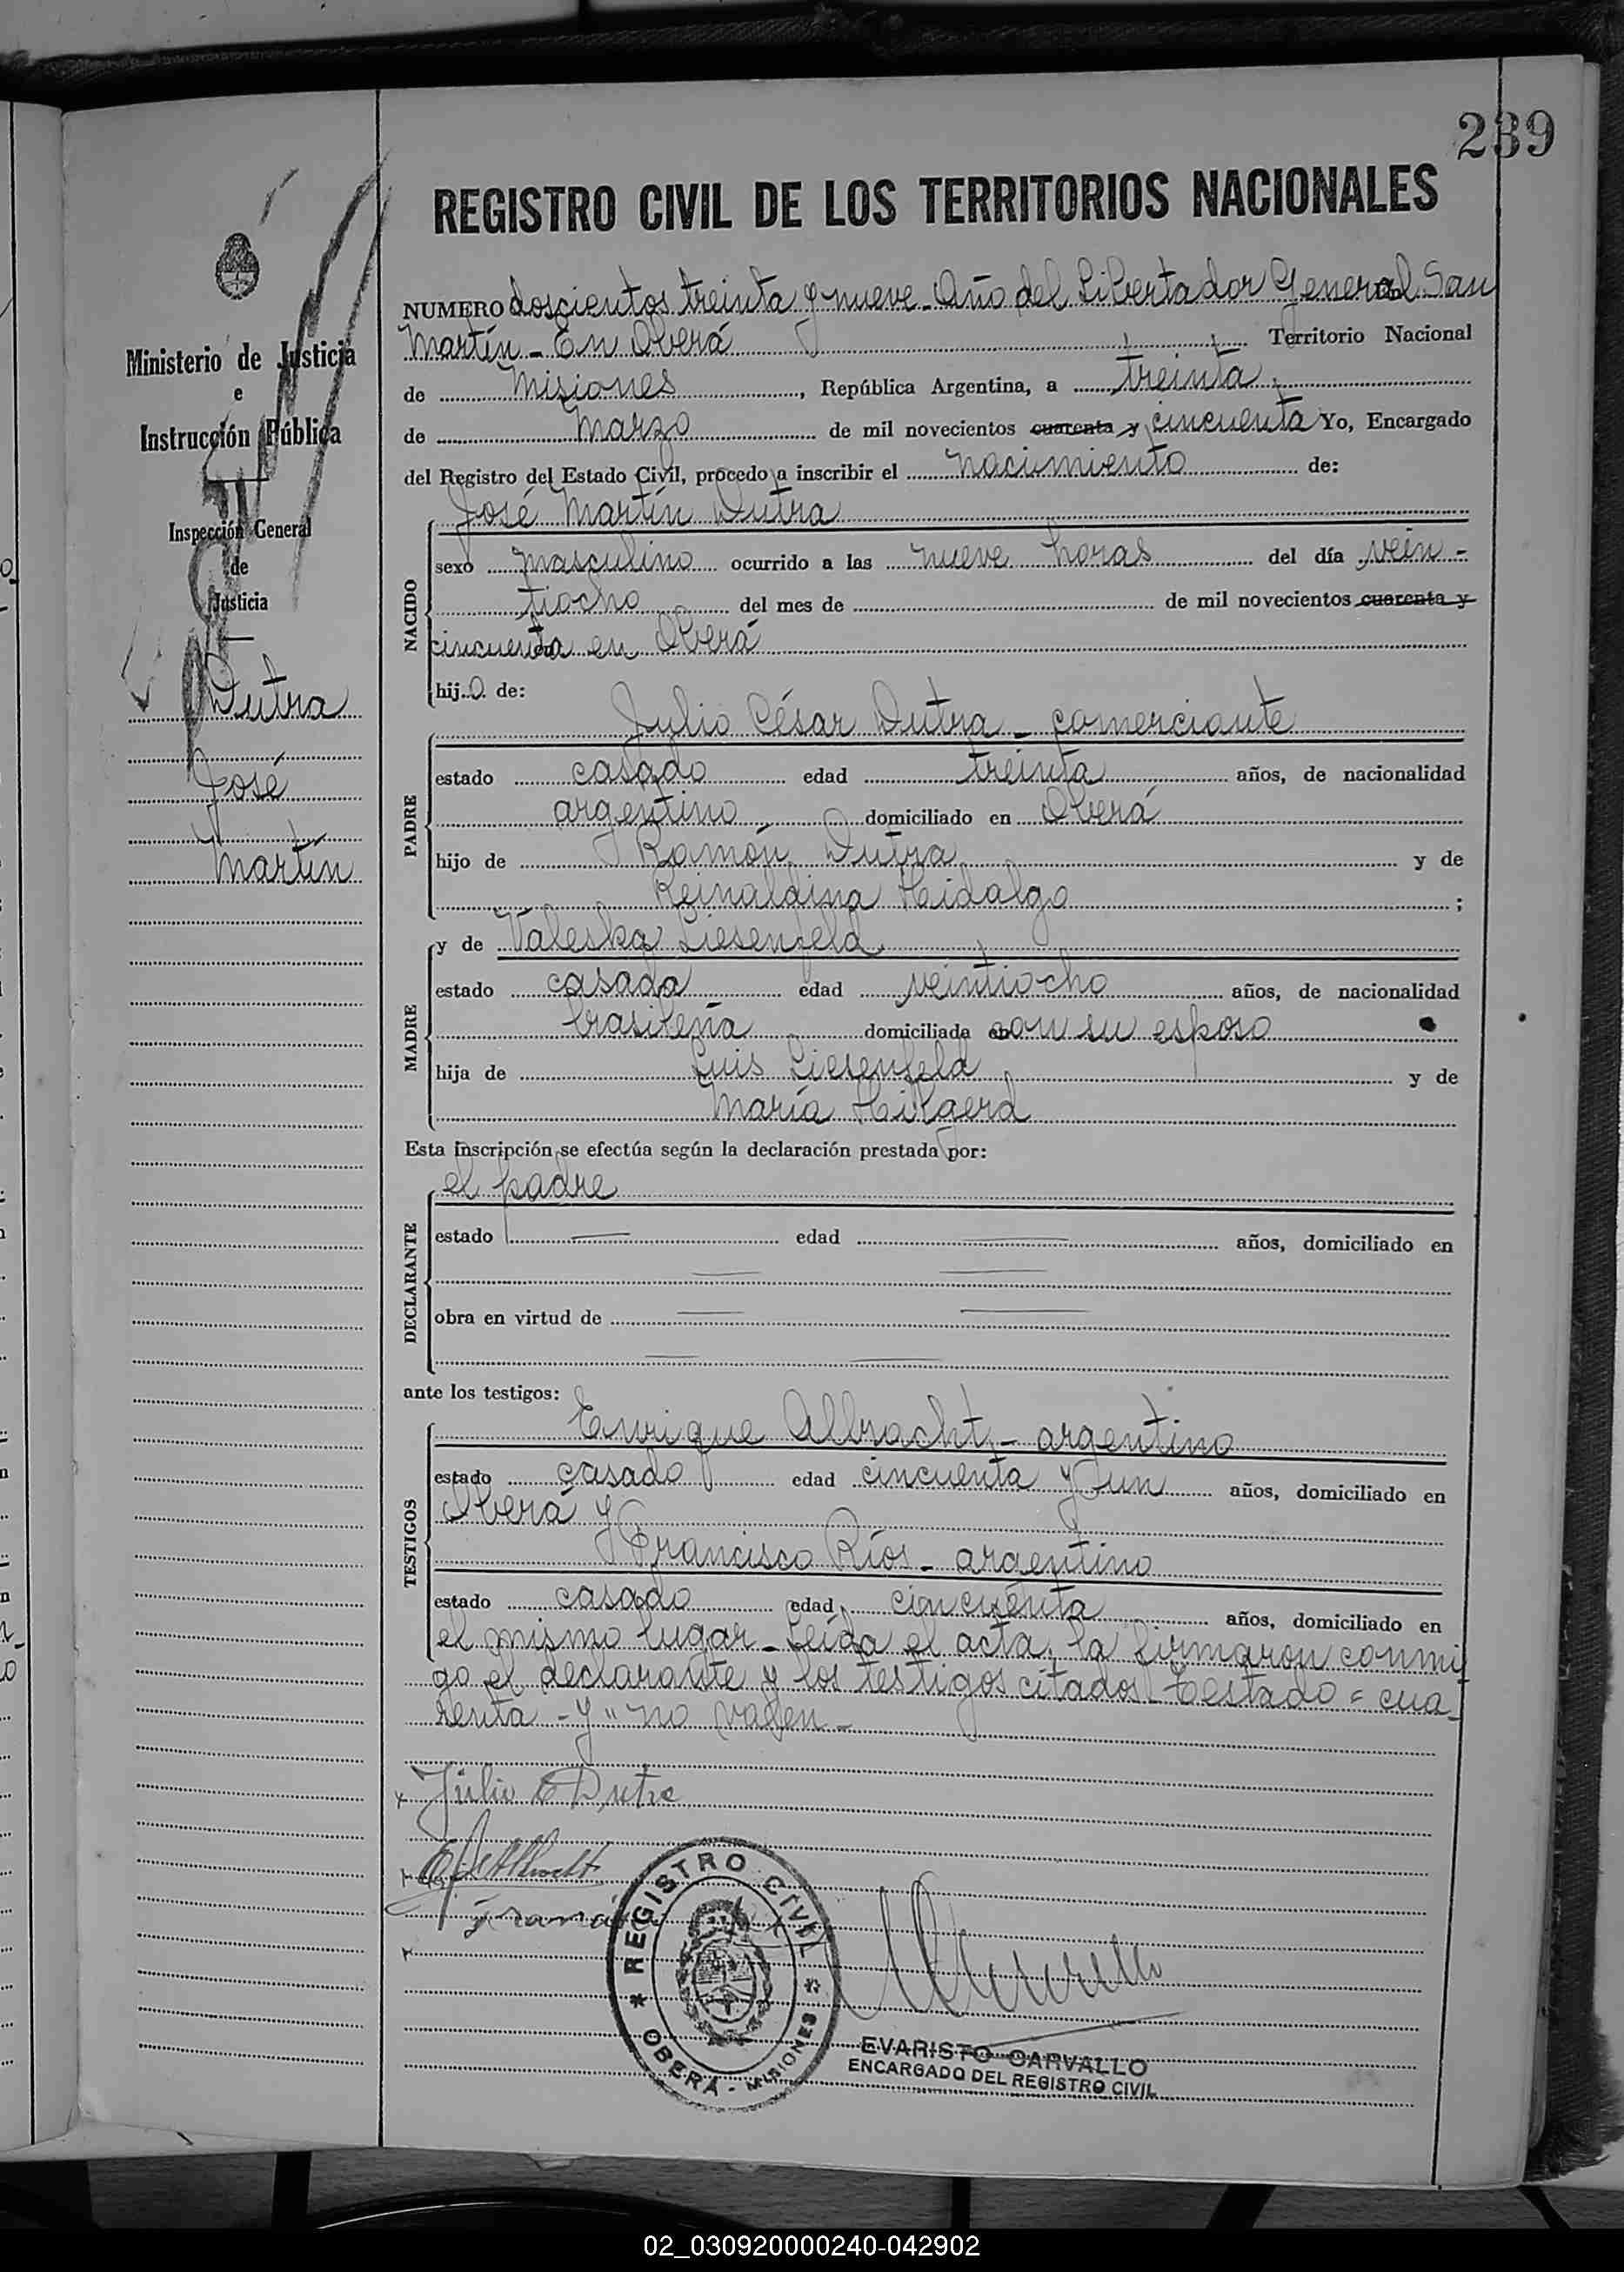 239
REGISTRO CIVIL DE LOS TERRITORIOS NACIONALES
Ministerio de Justicia
e
Instrucción Pública
Inspección General
de
Justicia
Dutra
José
Martín
NUMERO doscientos treinta y nueve - Año del Libertador General San
Martín - En Oberá Territorio Nacional
de Misiones, República Argentina, a treinta
de Marzo de mil novecientos cuarenta y cincuenta Yo, Encargado
del Registro del Estado Civil, procedo a inscribir el nacimiento de:
José Martín Dutra
NACIDO
sexo masculino ocurrido a las nueve horas del día vein-
tiocho del mes de de mil novecientos cuarenta y
cincuenta en Oberá
hijo de:
Julio César Dutra - comerciante
PADRE
estado casado edad treinta años, de nacionalidad
argentino domiciliado en Oberá
hijo de Ramón Dutra y de
Reinaldina Hidalgo ;
MADRE
y de Valeska Liesenfeld
estado casada edad veintiocho años, de nacionalidad
brasileña domiciliada con su esposo
hija de Luis Liesenfeld y de
María Hilgerd
Esta inscripción se efectúa según la declaración prestada por:
el padre
DECLARANTE
estado edad años, domiciliado en
obra en virtud de
ante los testigos:
Enrique Albracht - argentino
TESTIGOS
estado casado edad cincuenta y un años, domiciliado en
Oberá y
Francisco Ríos - argentino
estado casado edad cincuenta años, domiciliado en
el mismo lugar - Leída el acta, la firmaron conmi
go el declarante y los testigos citados - Testado = cua-
renta - y " no valen -
Julio C Dutra
REGISTRO CIVIL
OBERÁ - MISIONES
EVARISTO CARVALLO
ENCARGADO DEL REGISTRO CIVIL
02_030920000240-042902